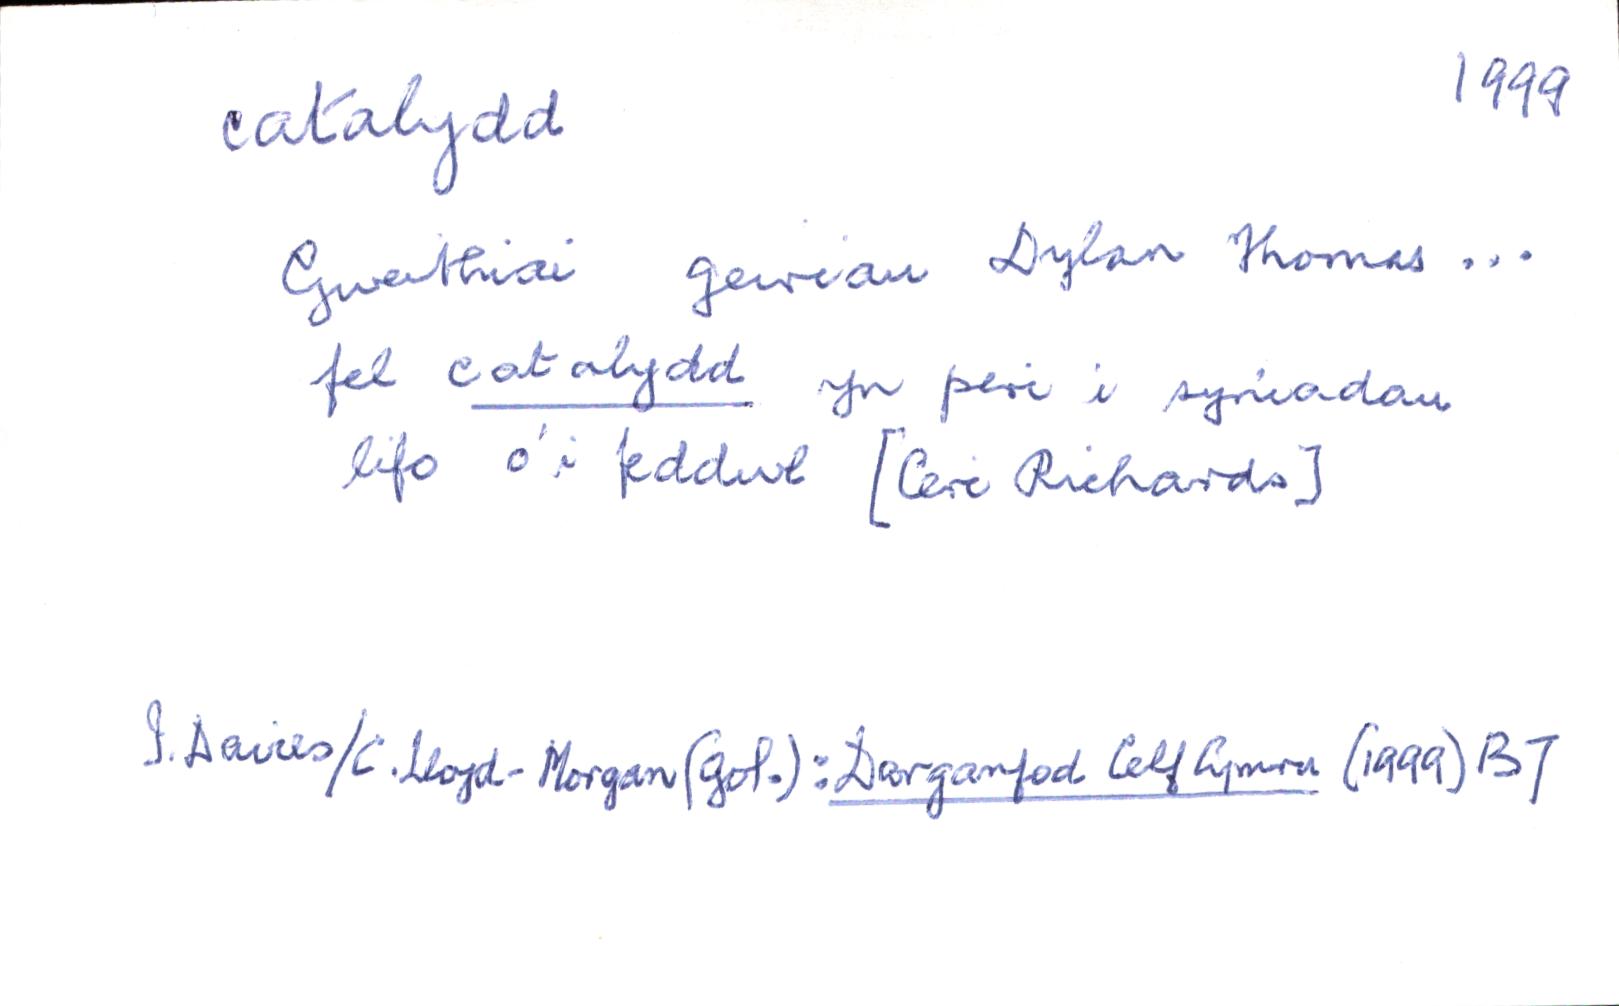 catalydd 1999
Gweithiai geiriau Dylan Thomas ...
fel catalydd yn peri i syniadau
lifo o'i feddwl [Ceri Richards]
I. Davies/C. Lloyd-Morgan (Gol.): Darganfod Celf Cymru (1999) BJ